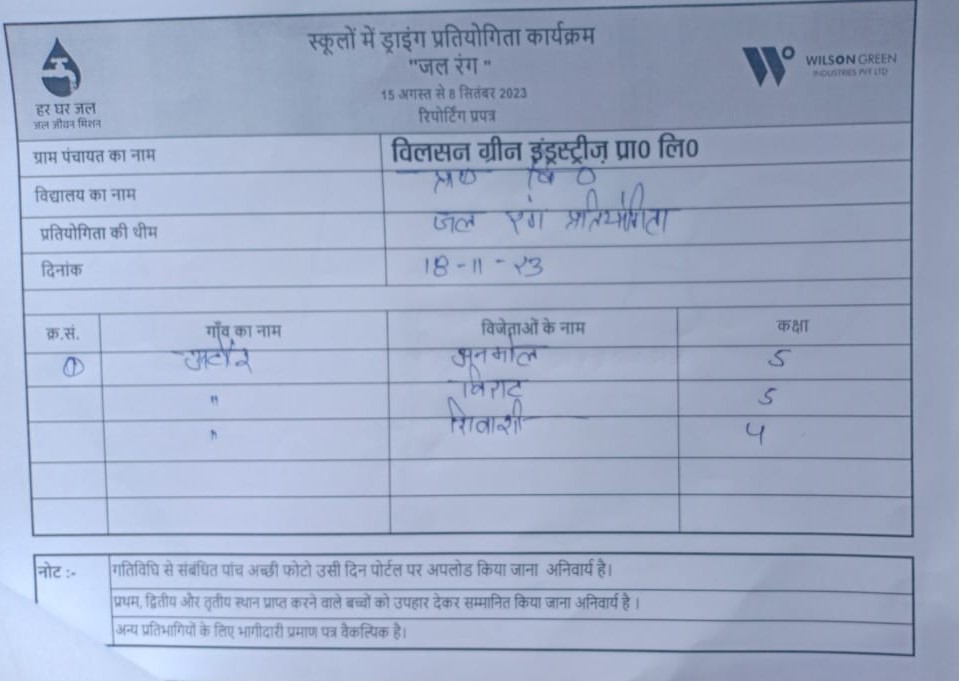 स्कूलों में ड्राइंग प्रतियोगिता कार्यक्रम
"जल रंग "
15 अगस्त से 8 सितंबर 2023
रिपोर्टिंग प्रपत्र
हर घर जल
जल जीवन मिशन
WILSON GREEN
INDUSTRIES PVT LTD
ग्राम पंचायत का नाम विलसन ग्रीन इंडस्ट्रीज़ प्रा0 लि0
विद्यालय का नाम प्रा0 वि0
प्रतियोगिता की थीम जल रंग प्रतियोगिता
दिनांक 18-11-23
क्र.सं. गाँव का नाम विजेताओं के नाम कक्षा
① अटौर अनमोल 5
" विराट 5
" शिवांशी 4
नोट :- गतिविधि से संबंधित पांच अच्छी फोटो उसी दिन पोर्टल पर अपलोड किया जाना अनिवार्य है।
प्रथम, द्वितीय और तृतीय स्थान प्राप्त करने वाले बच्चों को उपहार देकर सम्मानित किया जाना अनिवार्य है ।
अन्य प्रतिभागियों के लिए भागीदारी प्रमाण पत्र वैकल्पिक है।